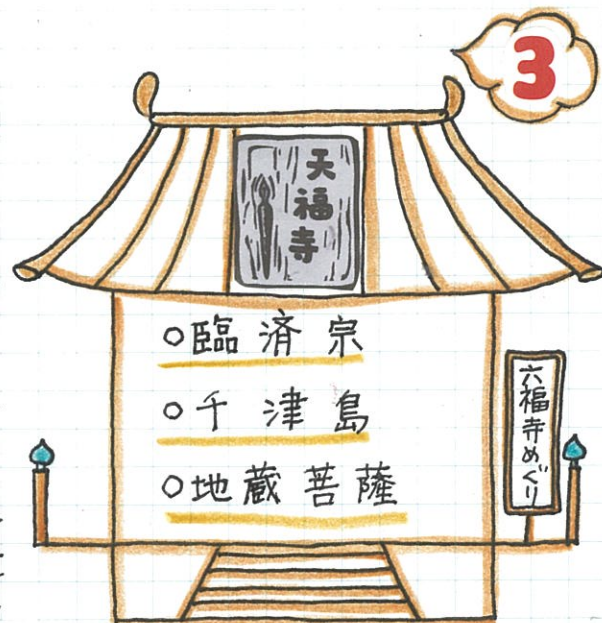 3
天福寺
○臨済宗
○千津島
○地蔵菩薩
六福寺めぐり